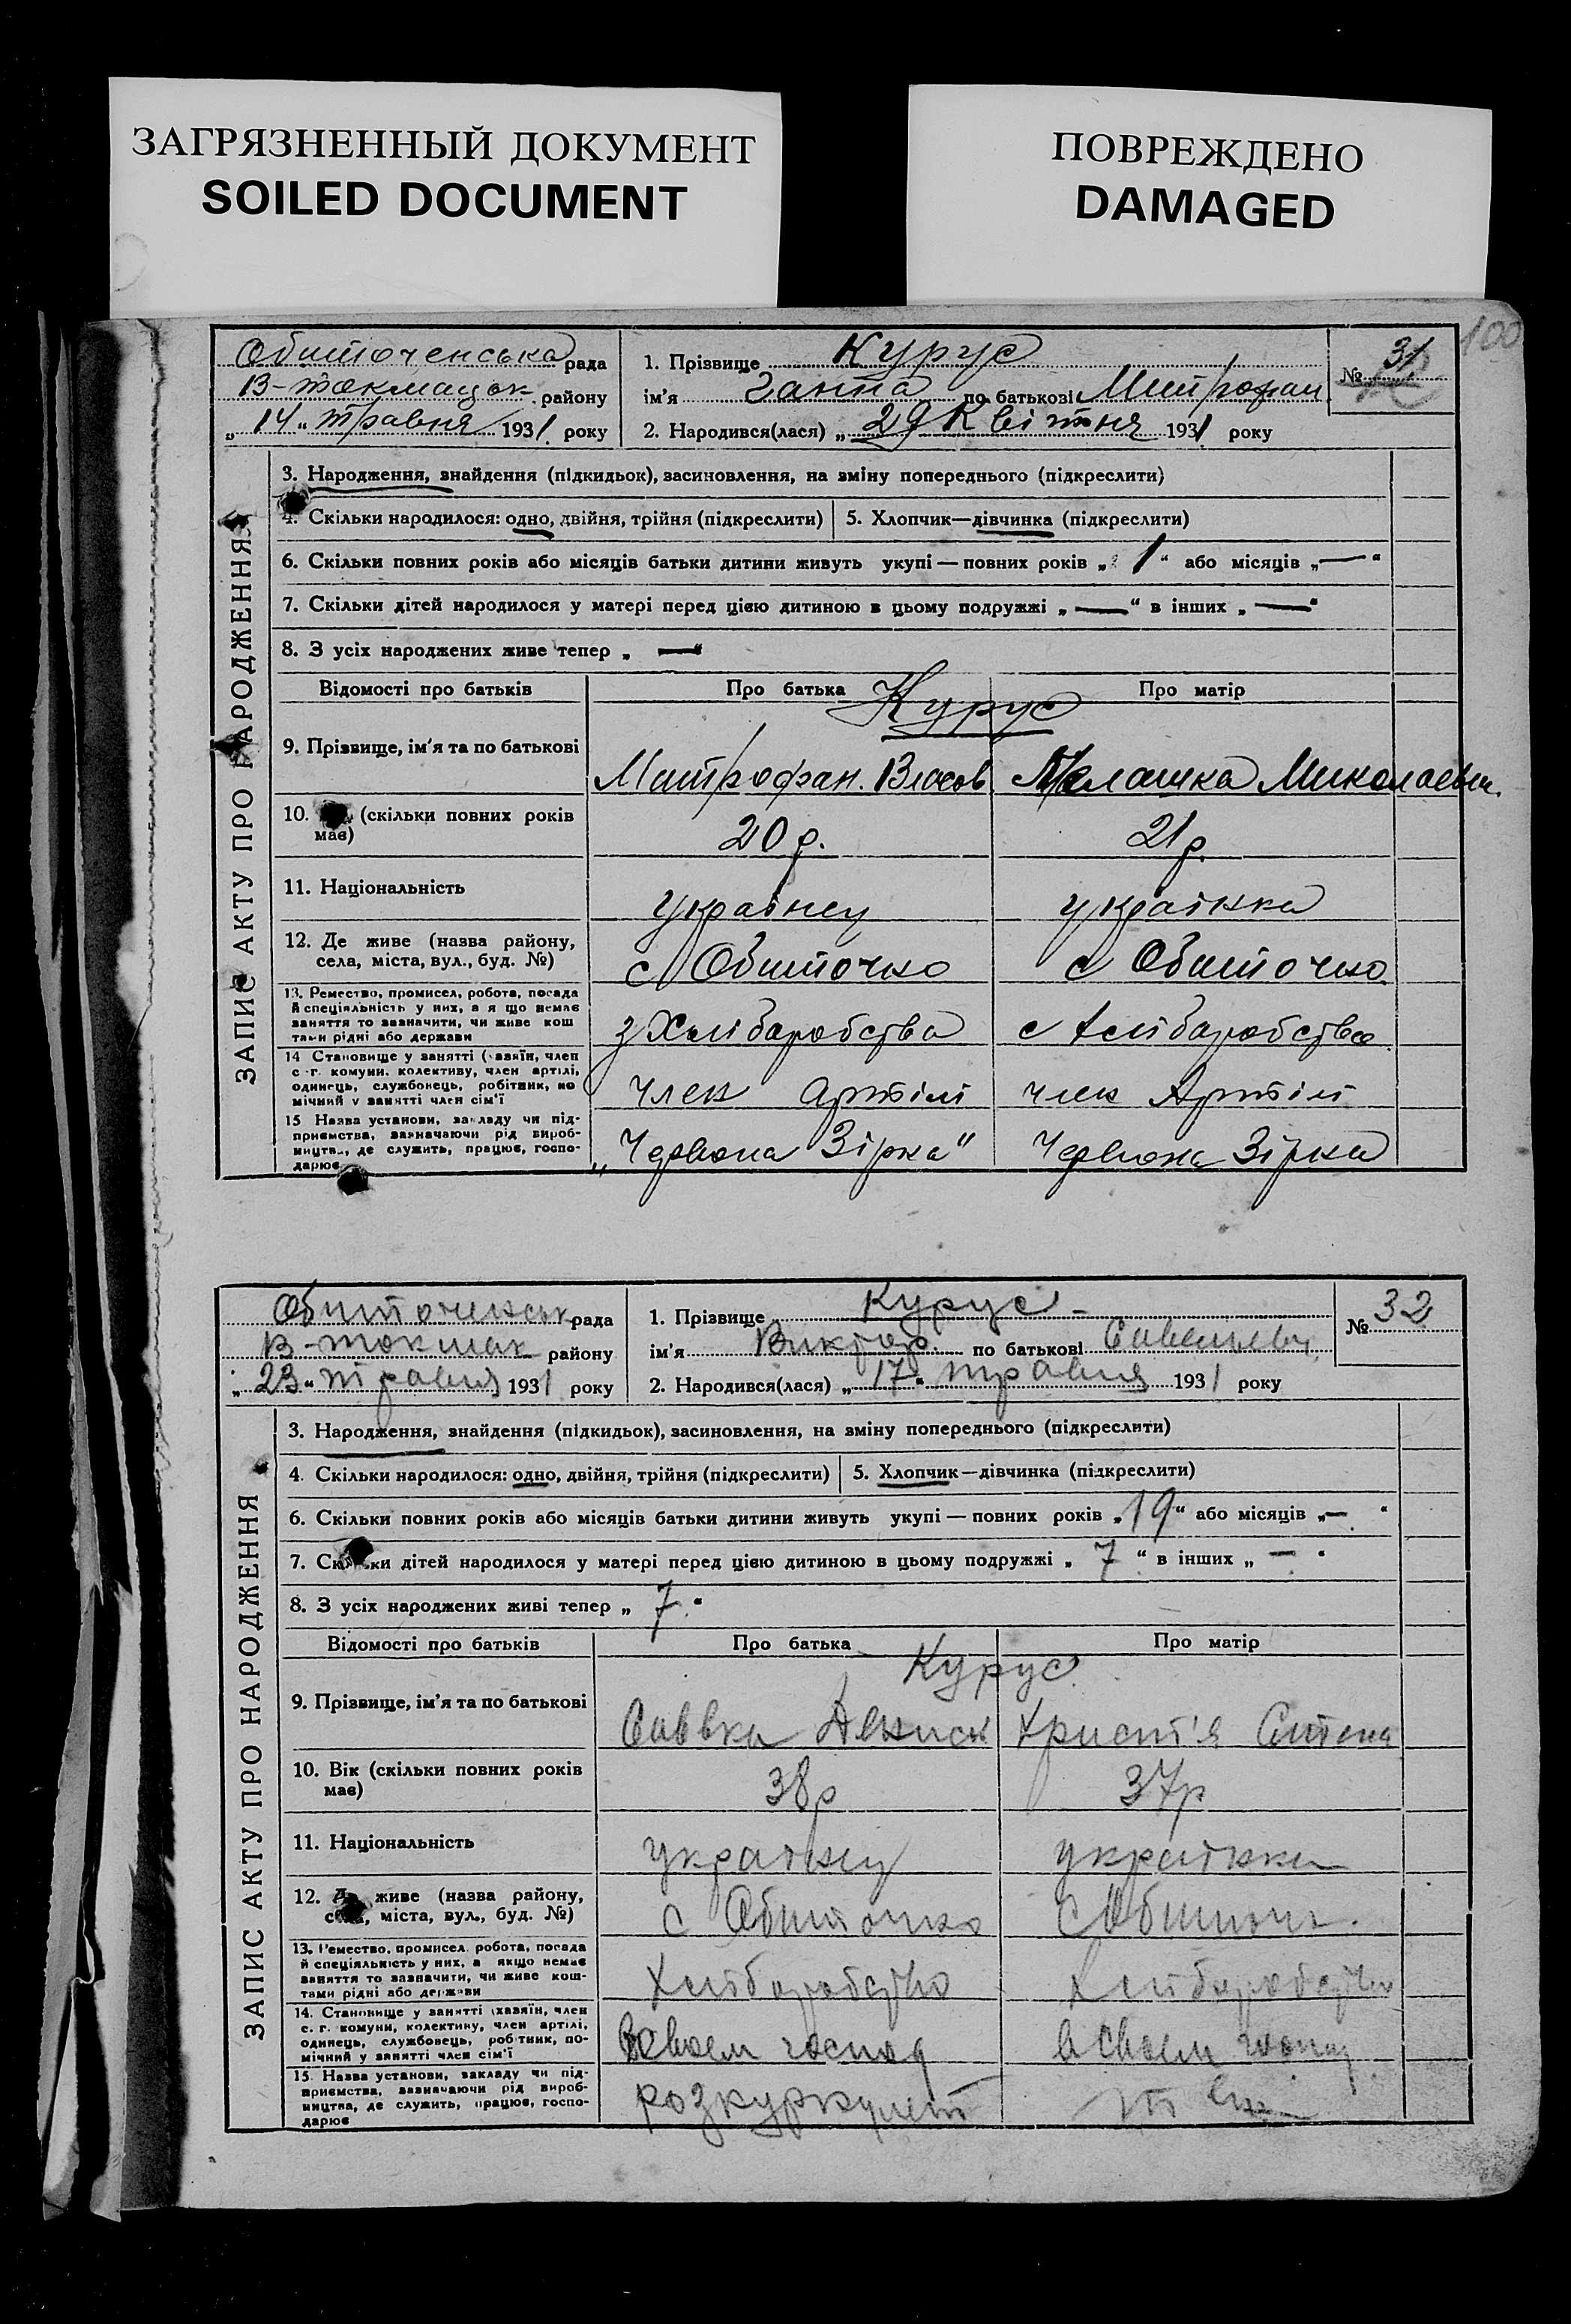 ЗАГРЯЗНЕННЫЙ ДОКУМЕНТ
SOILED DOCUMENT
ПОВРЕЖДЕНО
DAMAGED
100
Обиточенська рада
В-токмацьк району
„14“ травня 1931 року
1. Прізвище Курус
ім'я Ганна по батькові Митрофан
2. Народився(лася) „29 Квітня 1931 року
№ 31
ЗАПИС АКТУ ПРО НАРОДЖЕННЯ
3. Народження, знайдення (підкидьок), засиновлення, на зміну попереднього (підкреслити)
4. Скільки народилося: одно, двійня, трійня (підкреслити) 5. Хлопчик—дівчинка (підкреслити)
6. Скільки повних років або місяців батьки дитини живуть укупі — повних років „1“ або місяців „—“
7. Скільки дітей народилося у матері перед цією дитиною в цьому подружжі „—“ в інших „—“
8. З усіх народжених живе тепер „—“
Відомості про батьків Про батька Про матір
Курус
9. Прізвище, ім'я та по батькові Митрофан. Власов Мелашка Миколаевн.
10. (скільки повних років має) 20 р. 21 р.
11. Національність українец українка
12. Де живе (назва району, села, міста, вул., буд. №) с Обиточно с Обиточно
13. Ремество, промисел, робота, посада й спеціяльність у них, а я що немає заняття то зазначити, чи живе коштами рідні або держави з Хліборобства с Хліборобства
14 Становище у занятті (хазяїн, член с.-г. комуни, колективу, член артілі, одинець, службовець, робітник, помічний у занятті член сім'ї член артілі член Артілі
15 Назва установи, закладу чи підприємства, зазначаючи рід виробництва, де служить, працює, господарює „Червона Зірка“ Червона Зірка
Обиточенськ рада
В-токмак району
„23“ травня 1931 року
1. Прізвище Курус
ім'я Виктор. по батькові Савельевич
2. Народився(лася) „17“ травня 1931 року
№ 32
ЗАПИС АКТУ ПРО НАРОДЖЕННЯ
3. Народження, знайдення (підкидьок), засиновлення, на зміну попереднього (підкреслити)
4. Скільки народилося: одно, двійня, трійня (підкреслити) 5. Хлопчик—дівчинка (підкреслити)
6. Скільки повних років або місяців батьки дитини живуть укупі — повних років „19“ або місяців „—“
7. Скільки дітей народилося у матері перед цією дитиною в цьому подружжі „7“ в інших „—“
8. З усіх народжених живі тепер „7“
Відомості про батьків Про батька Про матір
Курус
9. Прізвище, ім'я та по батькові Саввка Денисов Христ'я Степа
10. Вік (скільки повних років має) 38 р 37 р
11. Національність українец українка
12. Де живе (назва району, села, міста, вул., буд. №) с Обиточно с Обиточн.
13. Ремество, промисел, робота, посада й спеціяльність у них, а якщо немає заняття то зазначити, чи живе коштами рідні або держави Хліборобство Хліборобство
14. Становище у занятті (хазяїн, член с. г. комуни, колективу, член артілі, одинець, службовець, робітник, помічний у занятті член сім'ї в своем господ в своем
15. Назва установи, закладу чи підприємства, зазначаючи рід виробництва, де служить, працює, господарює розкуркулет